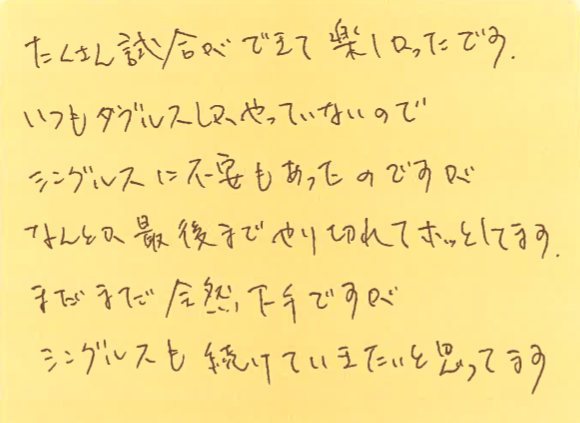 たくさん試合ができて楽しかったです.
いつもダブルスしか、やっていないので
シングルスに不安もあったのですが
なんとか、最後までやり切れてホッとしてます.
まだまだ全然、下手ですが
シングルスも続けていきたいと思ってます